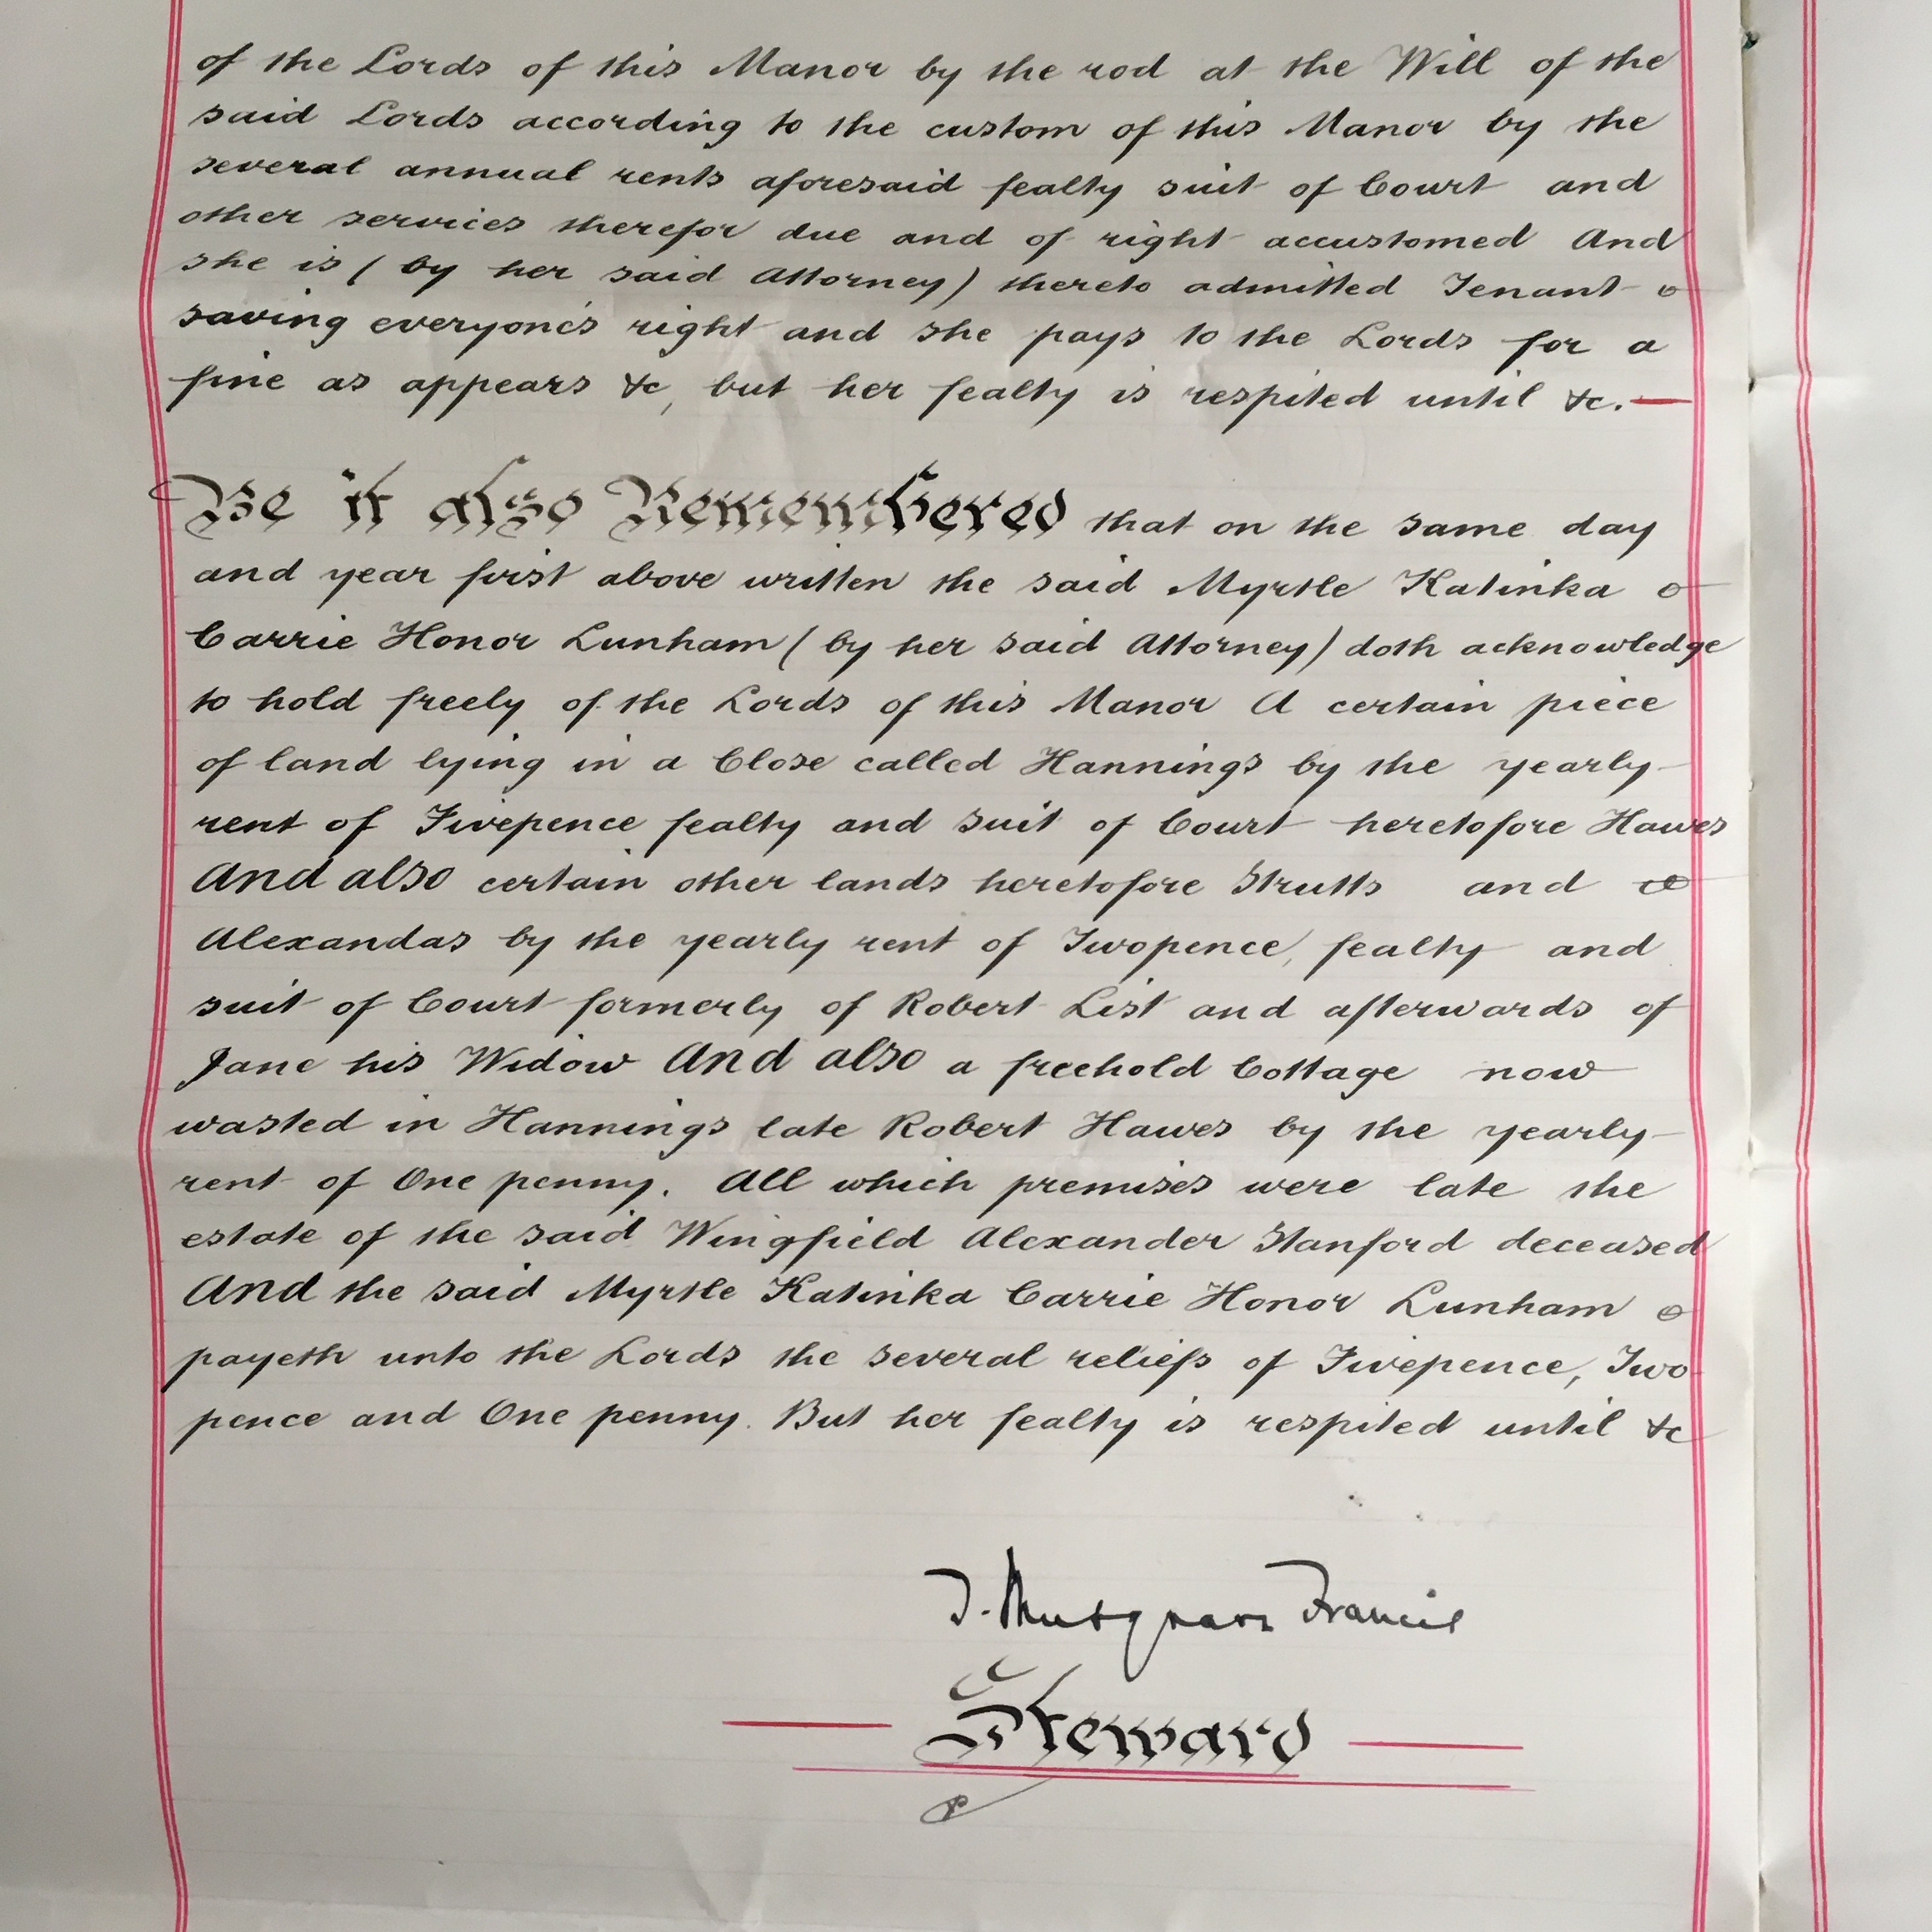 of the Lords of this Manor by the rod at the Will of the
said Lords according to the custom of this Manor by the
several annual rents aforesaid fealty suit of Court and
other services therefor due and of right accustomed And
she is (by her said Attorney) thereto admitted Tenant
saving everyone's right and she pays to the Lords for a
fine as appears &c, but her fealty is respited until &c.
Be it also Remembered that on the same day
and year first above written the said Myrtle Katinka
Carrie Honor Lunham (by her said Attorney) doth acknowledge
to hold freely of the Lords of this Manor A certain piece
of land lying in a Close called Hannings by the yearly
rent of Fivepence fealty and suit of Court heretofore Hawes
And also certain other lands heretofore Strutts and
Alexandas by the yearly rent of Twopence, fealty and
suit of Court formerly of Robert List and afterwards of
Jane his Widow And also a freehold Cottage now
wasted in Hannings late Robert Hawes by the yearly
rent of One penny. All which premises were late the
estate of the said Wingfield Alexander Stanford deceased
And the said Myrtle Katinka Carrie Honor Lunham
payeth unto the Lords the several reliefs of Fivepence, Two
pence and One penny. But her fealty is respited until &c
T. Musgrave Francis
Steward